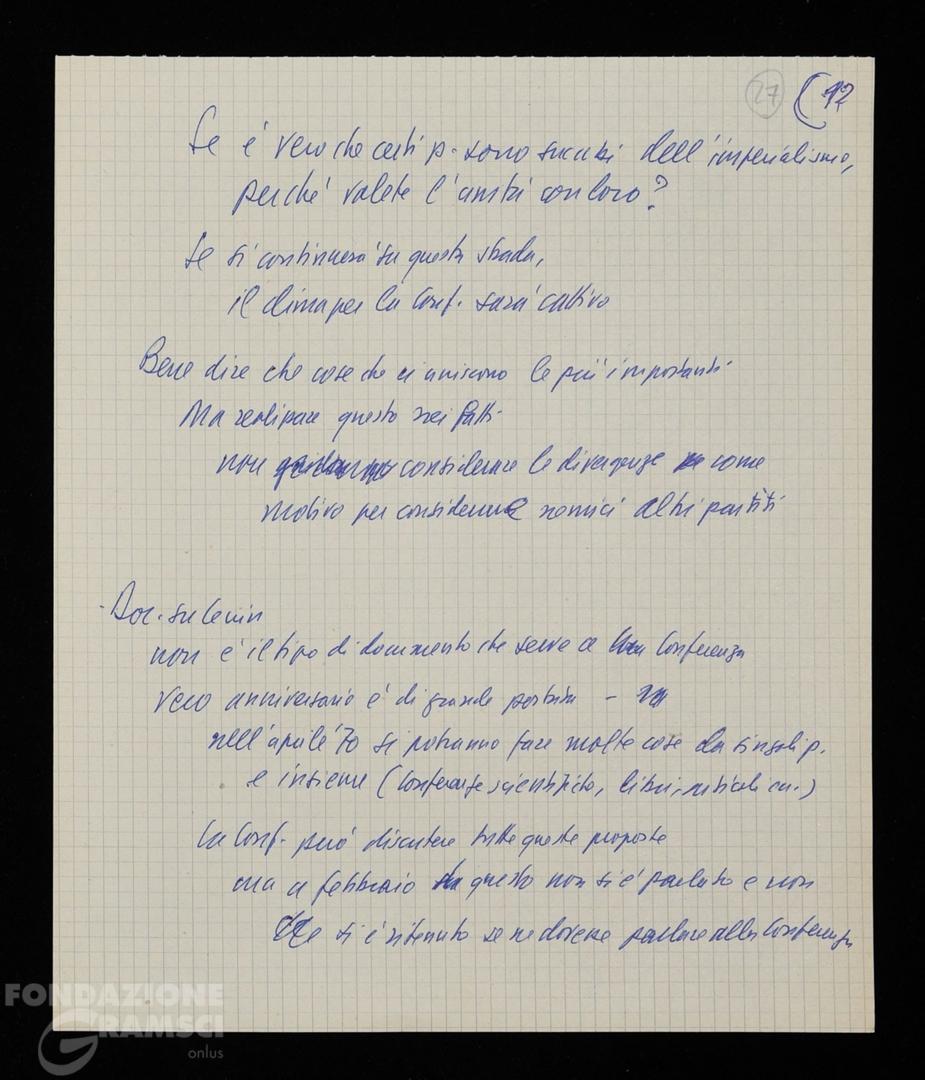 27 (12
Se è vero che certi p. sono succubi dell'imperialismo,
perché volete l'unità con loro?
Se si continuerà su questa strada,
il clima per la Conf. sarà cattivo
Bene dire che cose che ci uniscono le più importanti
Ma realizzare questo nei fatti
non considerare le divergenze come
motivo per considerare nemici altri partiti
- Doc. su Lenin
non è il tipo di documento che serve a Conferenza
Vero anniversario è di grande portata -
nell'aprile '70 si potranno fare molte cose da singoli p.
e insieme (conferenze scientifiche, libri, articoli ecc.)
La Conf. può discutere tutte queste proposte
ma a febbraio di questo non si è parlato e non
si è ritenuto se ne dovesse parlare alla Conferenza
FONDAZIONE
GRAMSCI
onlus